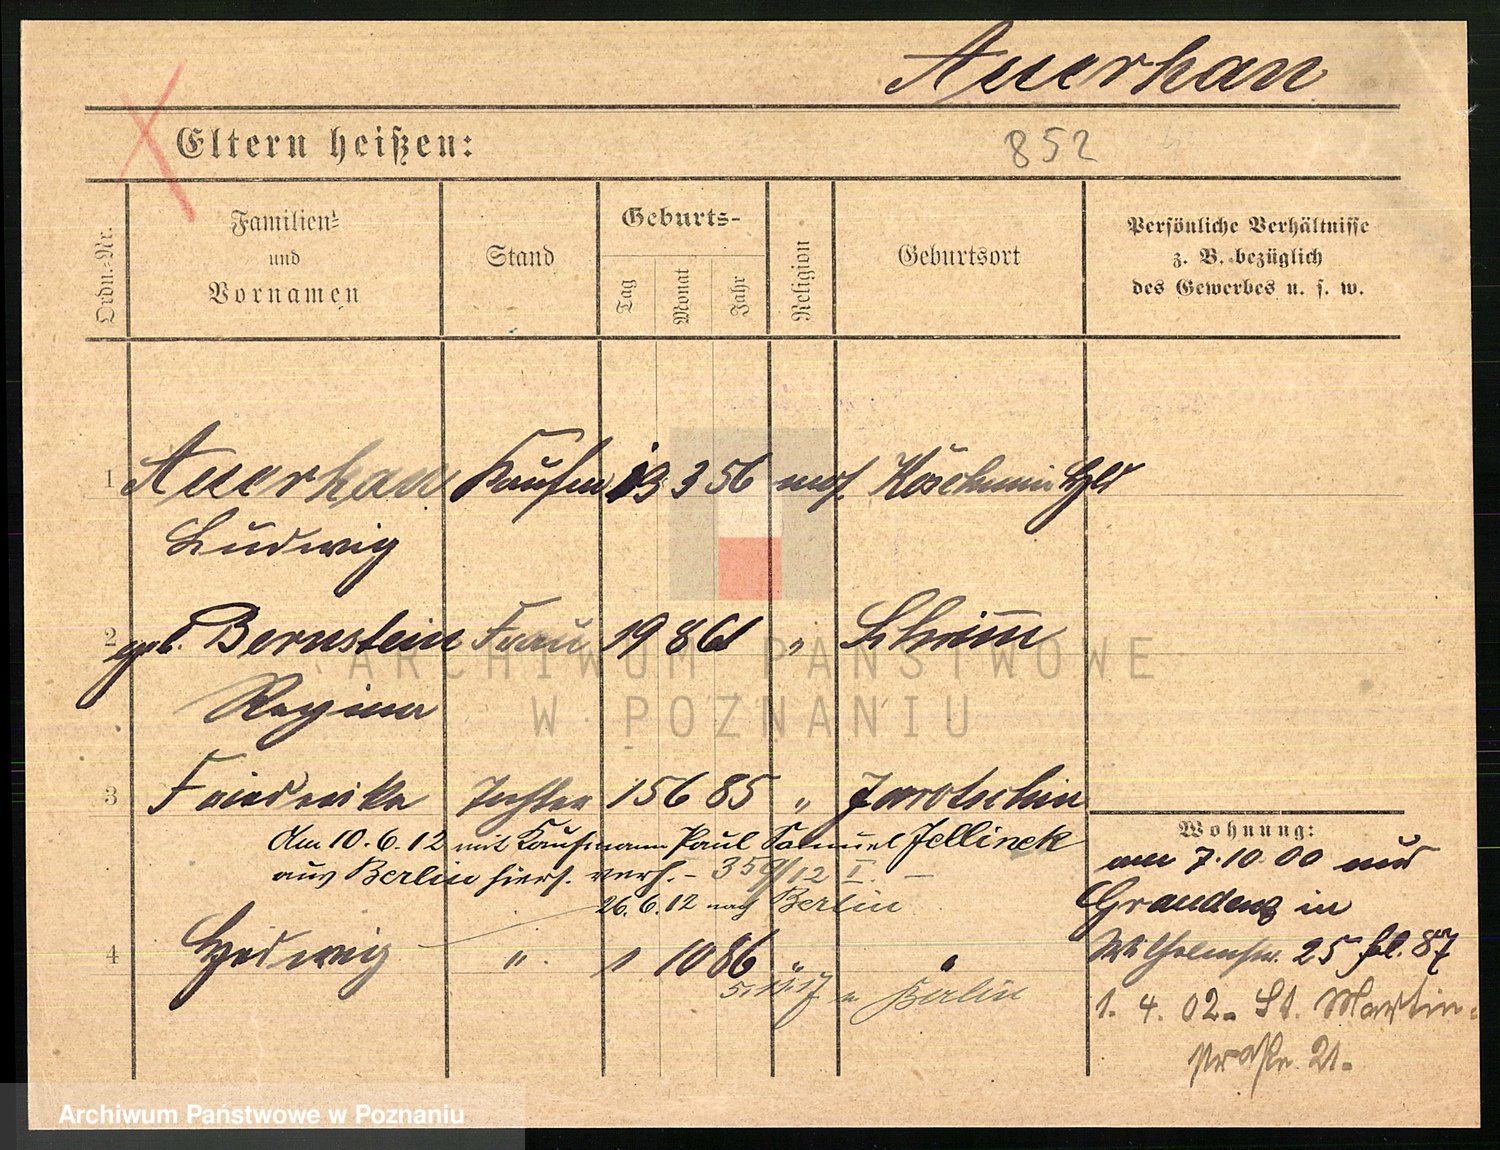 Auerhan
Eltern heißen:
852
Ordn.-Nr.
Familien-
und
Vornamen
Stand
Geburts-
Tag
Monat
Jahr
Religion
Geburtsort
Persönliche Verhältnisse
z. B. bezüglich
des Gewerbes u. s. w.
1 Auerhan Kaufm 13 3 56 mos.
Ludwig
2 geb. Bernstein Frau 19 8 61 " Schrimm
Regina
ARCHIWUM PAŃSTWOWE
W POZNANIU
3 Friederike Tochter 15 6 85 " Jarotschin
Am 10.6.12 mit Kaufmann Paul Samuel Jellinek
aus Berlin hiers. verh. - 359/12 I. -
26.6.12 nach Berlin
4 Hedwig " 1 10 86 " "
Berlin
Wohnung:
am 7.10.00 aus
Graudenz in
Wilhelmstr. 25 fol. 87
1. 4. 02. St. Martin-
straße 21.
Archiwum Państwowe w Poznaniu